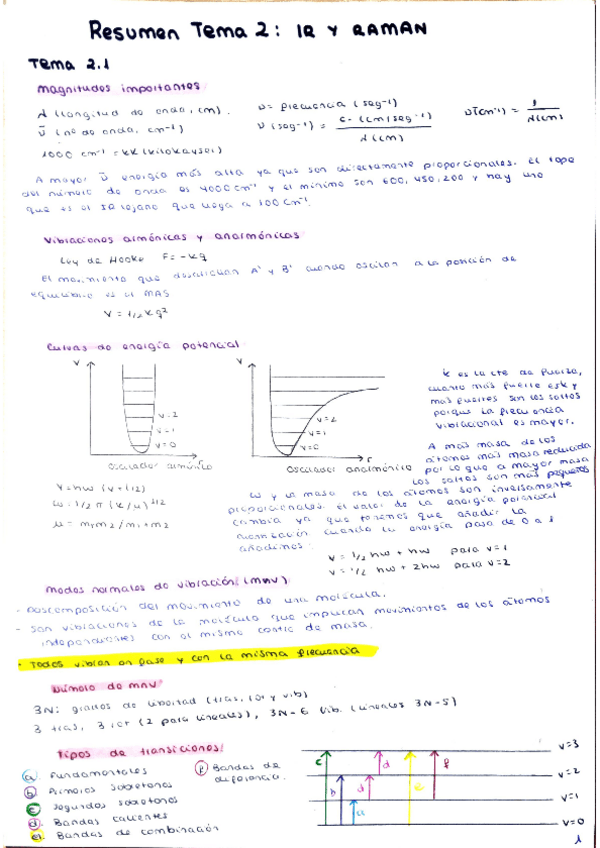 Resumen Tema 2: IR Y RAMAN
Tema 2.1
Magnitudes importantes:
λ (longitud de onda, cm).
ν = frecuencia (seg⁻¹)
ν̄ (cm⁻¹) = 1 / λ(cm)
ν̄ (nº de onda, cm⁻¹)
ν (seg⁻¹) = c · (cm/seg⁻¹) / λ(cm)
1000 cm⁻¹ = kK (kilokayser)
A mayor ν̄ energía más alta ya que son directamente proporcionales. El tope
del número de onda es 4000 cm⁻¹ y el mínimo son 600, 450, 200 y hay uno
que es el IR lejano que llega a 100 cm⁻¹.
Vibraciones armónicas y anarmónicas
Ley de Hooke F = -kq
El movimiento que describen A' y B' cuando oscilan a la posición de
equilibrio es el MAS
V = 1/2 kq²
Curvas de energía potencial
V
v=2
v=1
v=0
Oscilador armónico
V
v=2
v=1
v=0
r
Oscilador anarmónico
k es la cte de fuerza,
cuanto más fuerte es k y
más fuertes son los saltos
porque la frecuencia
vibracional es mayor.
A más masa de los
átomos más masa reducida
por lo que a mayor masa
los saltos son más pequeños
ω y la masa de los átomos son inversamente
proporcionales. El valor de la energía potencial
cambia ya que tenemos que añadir la
cuando la energía pasa de 0 a 1
añadimos:
V = hω (v + 1/2)
ω = 1/2 π (k/μ)^1/2
μ = m₁m₂/m₁+m₂
V = 1/2 hω + hω para v=1
V = 1/2 hω + 2hω para v=2
Modos normales de vibración (mnv):
- Descomposición del movimiento de una molécula.
- Son vibraciones de la molécula que implican movimientos de los átomos
independientes con el mismo centro de masa.
- Todos vibran en fase y con la misma frecuencia
Número de mnv
3N: grados de libertad (tras, rot y vib)
3 tras, 3 rot (2 para lineales), 3N-6 vib. (lineales 3N-5)
Tipos de transiciones:
a Fundamentales
b Primeros sobretonos
c Segundos sobretonos
d Bandas calientes
e Bandas de combinación
f Bandas de
diferencia.
c
b
a
d
d
e
f
v=3
v=2
v=1
v=0
1